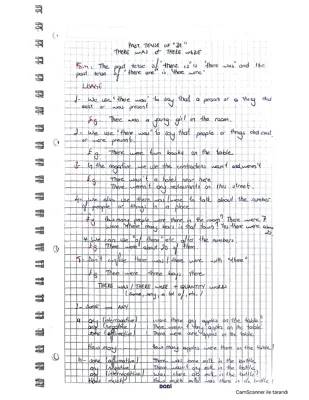 PAST TENSE OF "BE"
THERE WAS or THERE WERE
Form: The past tense of "there is" is "there was" and the
past tense of "there are" is "there were"
USAGE
1- We use "there was" to say that a person or a thing did
exist or was present.
E.g. There was a young girl in the room.
2- We use "there were" to say that people or things did exist
or were present.
E.g. There were two books on the table.
3- In the negative we use the contractions wasn't and weren't
E.g. There wasn't a hotel near here.
There weren't any restaurants on this street.
4- We also use there was/were to talk about the number
of people or things in a place.
E.g. How many people were there in the room? There were 7
4. We can use "of them" etc. after the numbers
E.g. There were about 20 of them
5. Don't confuse there was / there were with "there"
E.g. There were three boys there.
THERE WAS / THERE WERE + QUANTITY WORDS
(some, any, a lot of, etc.)
1- Some - ANY
a- any (interrogative) Were there any apples on the table?
any (negative) There weren't any apples on the table.
some (affirmative) There were some apples on the table.
How many How many apples were there on the table?
b- some (affirmative) There was some milk in the bottle
any (negative) There wasn't any milk in the bottle.
any (interrogative) Was there any milk in the bottle?
How much? How much milk was there in the bottle?
DONI
CamScanner ile tarandı